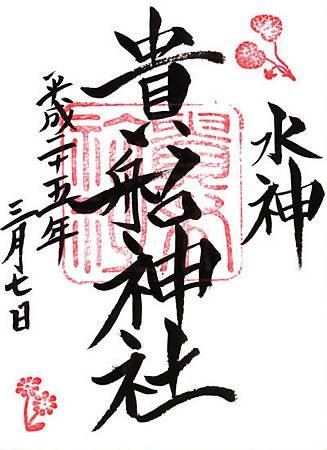 水神
貴船神社
平成二十五年
三月七日